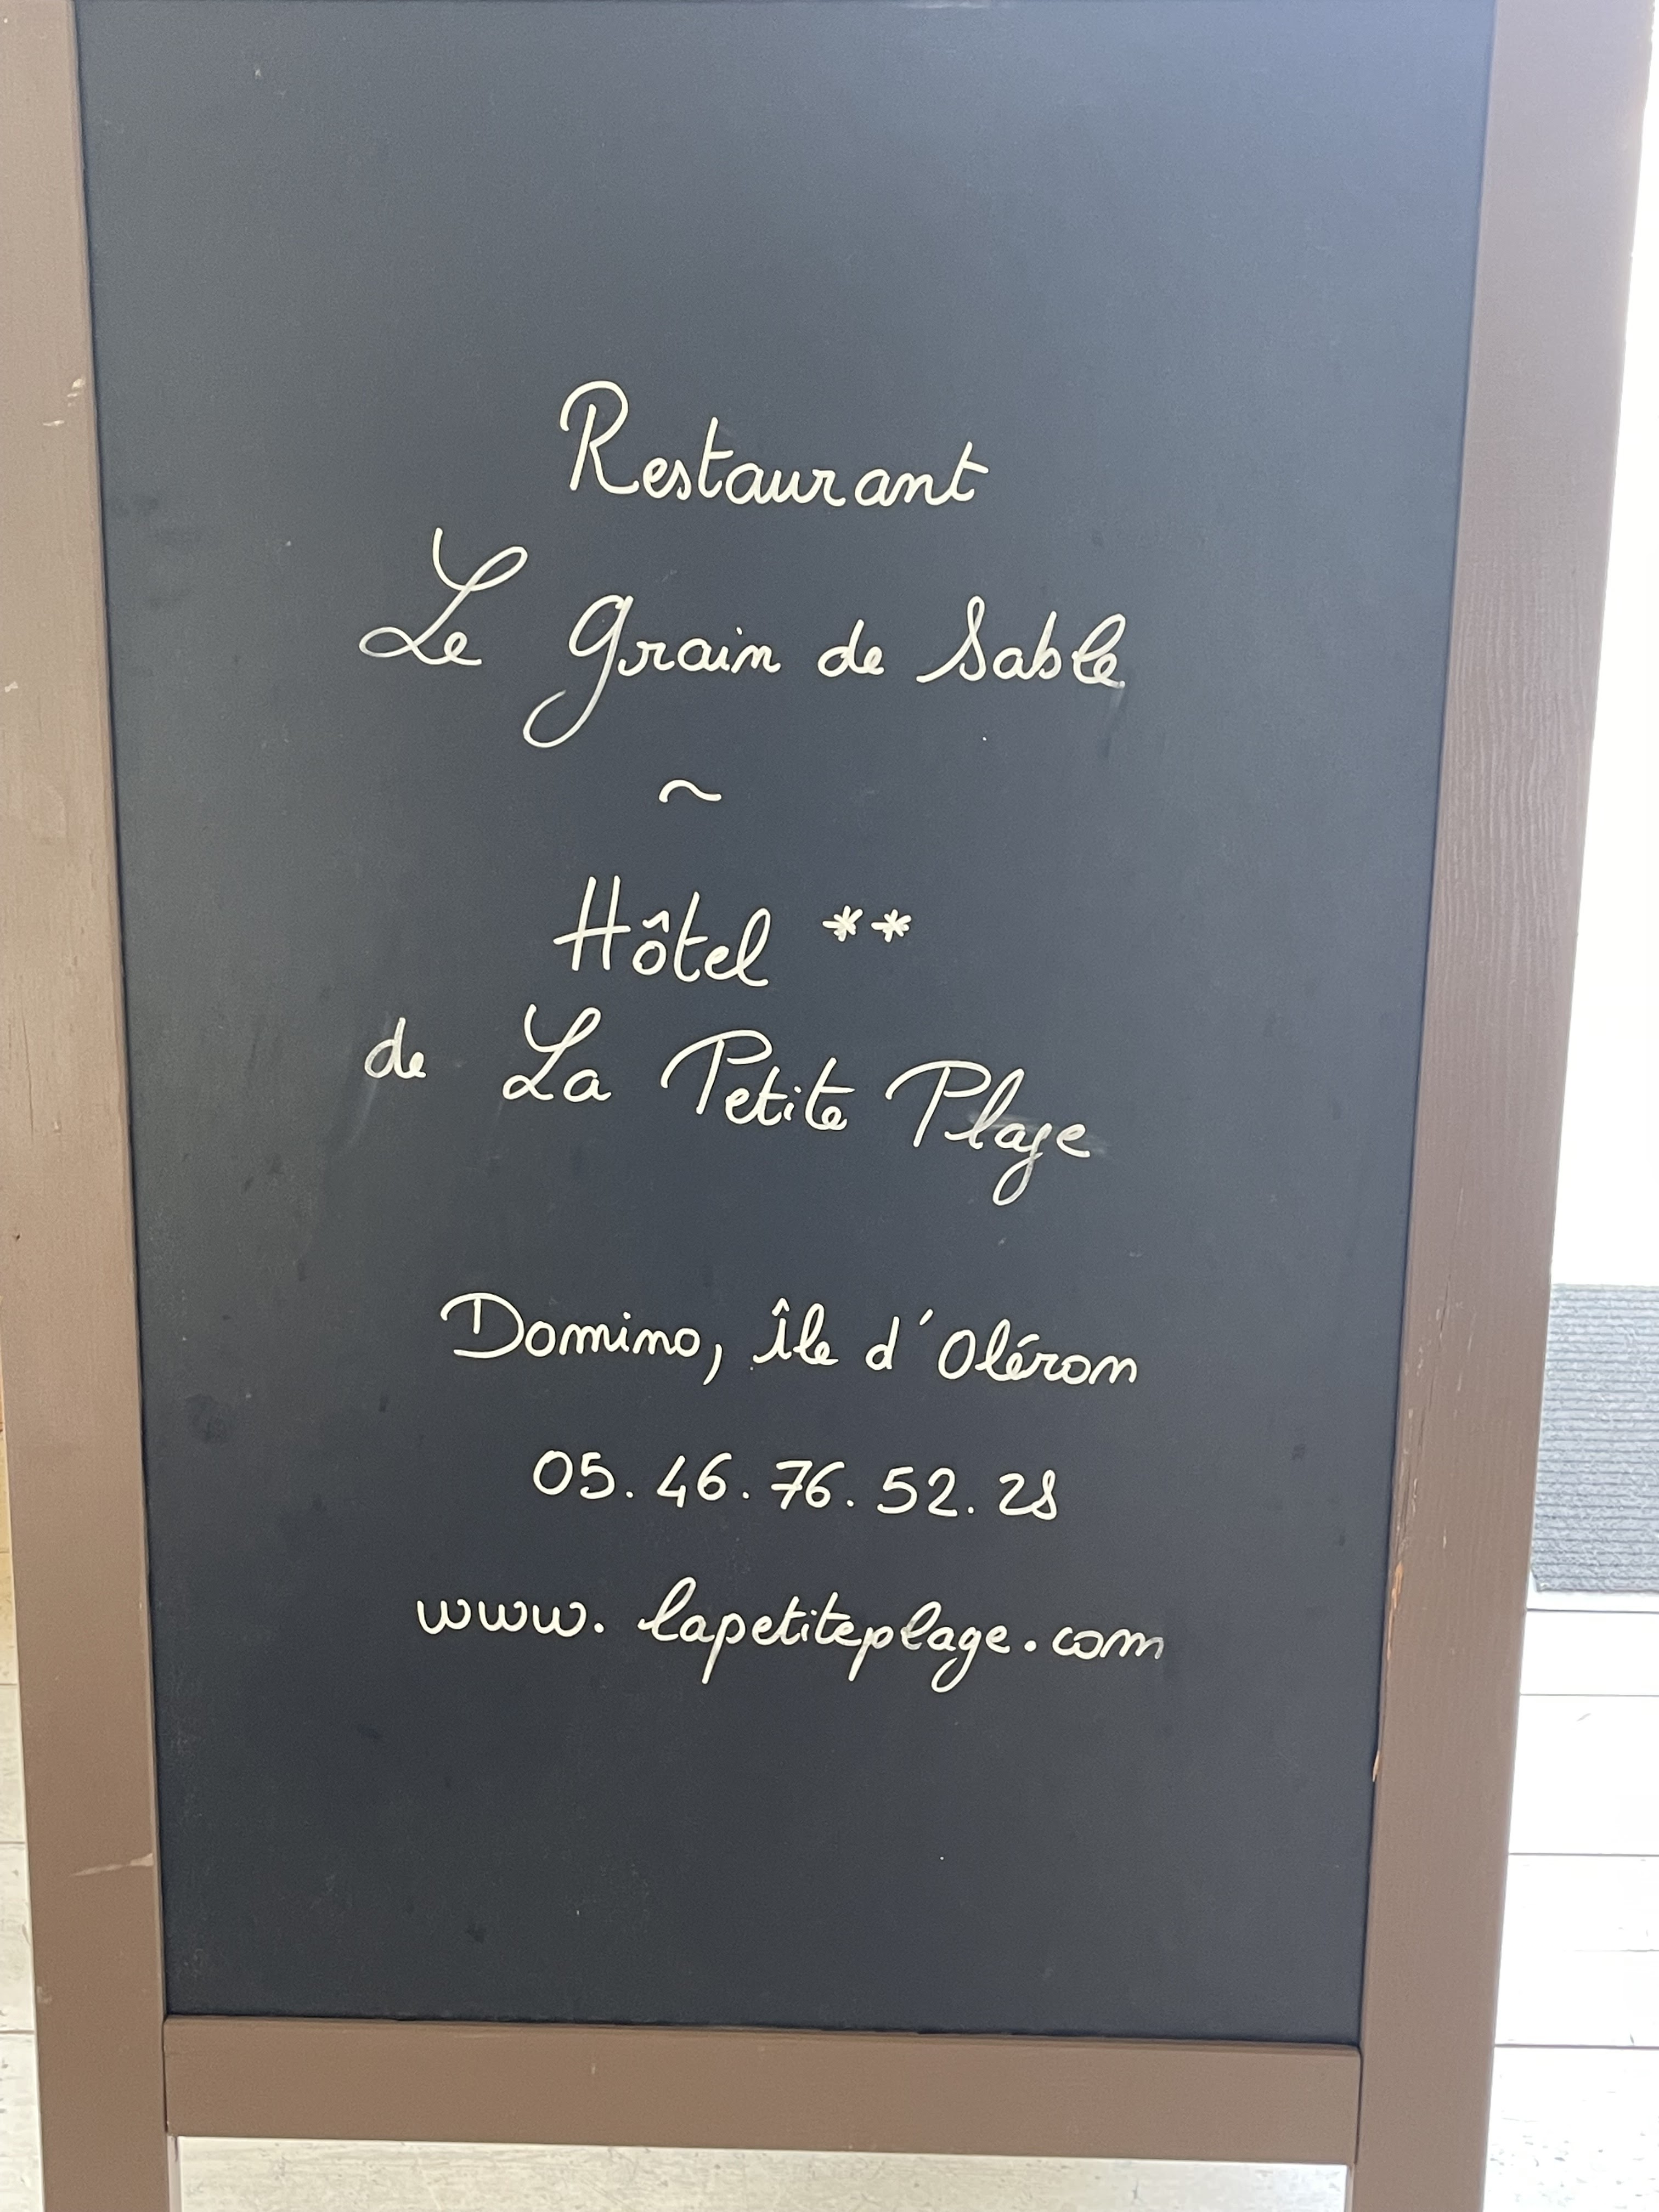 Restaurant
Le Grain de Sable
~
Hôtel **
de La Petite Plage
Domino, île d'Oléron
05.46.76.52.28
www.lapetiteplage.com